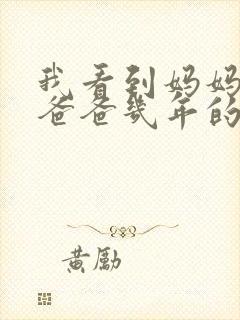 我看到妈妈
爸爸幾年的
黄勵